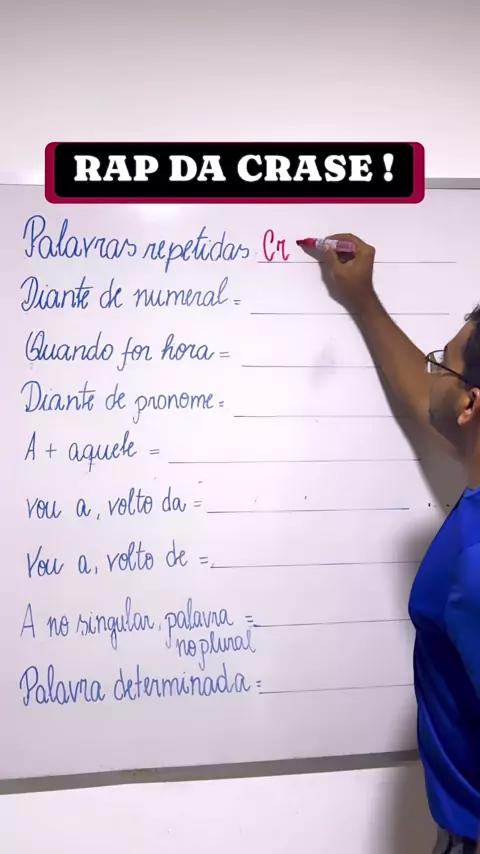 RAP DA CRASE !
Palavras repetidas Cr
Diante de numeral =
Quando for hora =
Diante de pronome =
A + aquele =
vou a, volto da =
Vou a, volto de =
A no singular, palavra =
no plural
Palavra determinada =